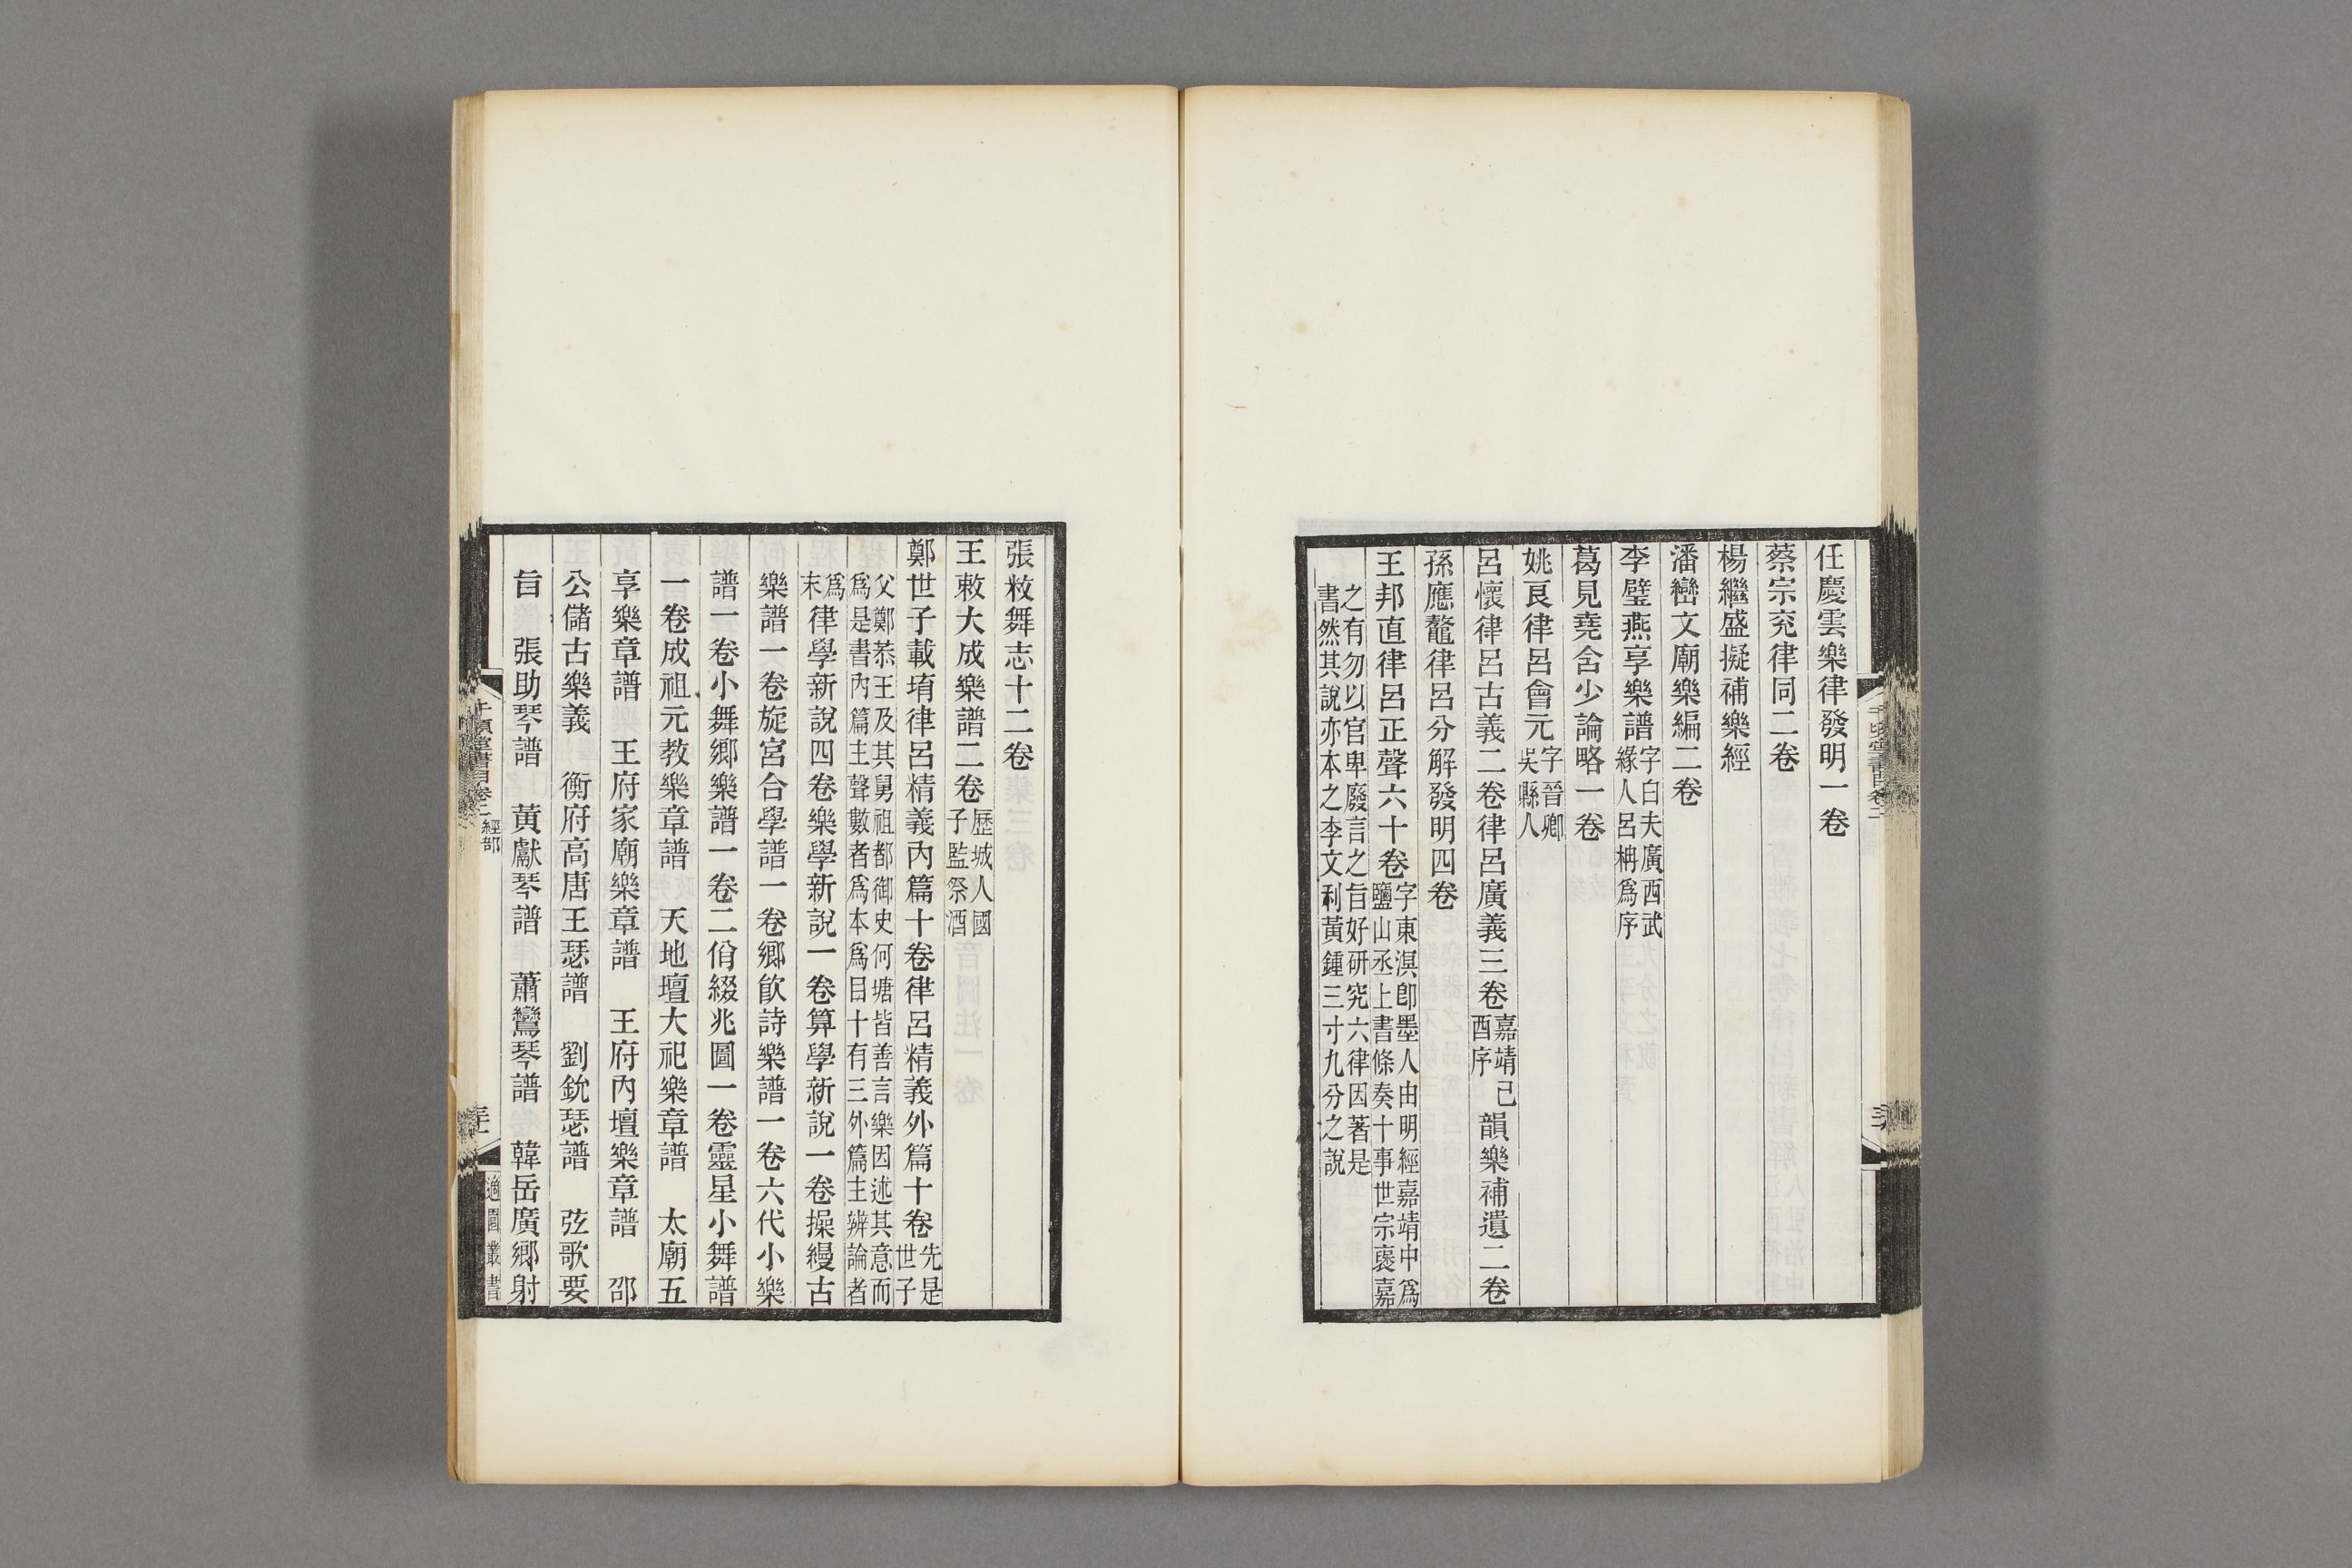 任慶雲樂律發明一卷
蔡宗兗律同二卷
楊繼盛擬補樂經
潘巒文廟樂編二卷
李璧燕享樂譜字白夫廣西武
緣人呂柟爲序
葛見堯含少論略一卷
姚良律呂會元字晉卿
吳縣人
呂懷律呂古義二卷律呂廣義三卷嘉靖己
酉序
韻樂補遺二卷
孫應鼇律呂分解發明四卷
王邦直律呂正聲六十卷字東溟卽墨人由明經嘉靖中爲
鹽山丞上書條奏十事世宗襃嘉
之有勿以官卑廢言之旨好研究六律因著是
書然其說亦本之李文利黃鍾三寸九分之說
張敉舞志十二卷
王敕大成樂譜二卷歷城人國
子監祭酒
鄭世子載堉律呂精義內篇十卷律呂精義外篇十卷先是
世子
父鄭恭王及其舅祖都御史何瑭皆善言樂因述其意而
爲是書內篇主聲數者爲本爲目十有三外篇主辨論者
爲
末
律學新說四卷樂學新說一卷算學新說一卷操縵古
樂譜一卷旋宮合學譜一卷鄉飮詩樂譜一卷六代小樂
譜一卷小舞鄉樂譜一卷二佾綴兆圖一卷靈星小舞譜
一卷成祖元教樂章譜　天地壇大祀樂章譜　太廟五
享樂章譜　王府家廟樂章譜　王府內壇樂章譜　邵
公儲古樂義　衡府高唐王瑟譜　劉鈗瑟譜　弦歌要
旨　張助琴譜　黃獻琴譜　蕭鸞琴譜　韓岳廣鄉射
千頃堂書目卷二
經部
適園叢書